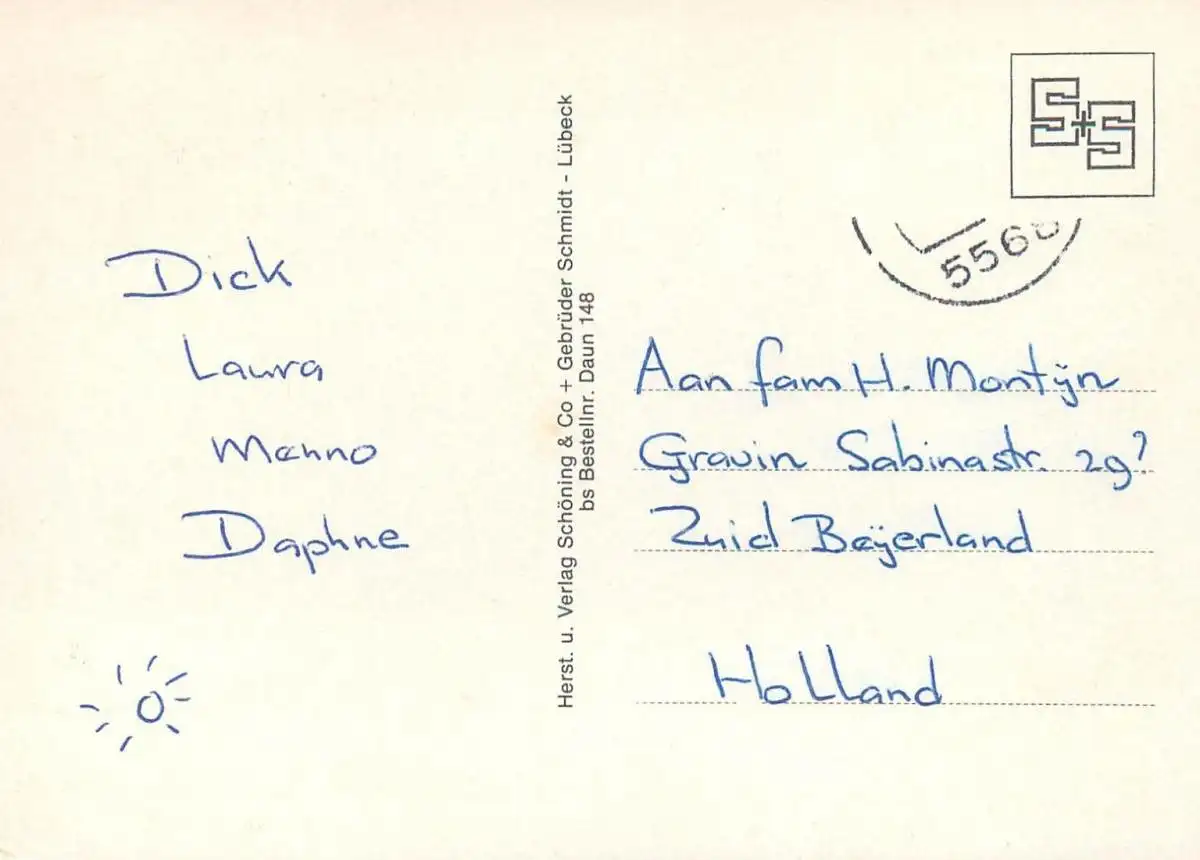 Dick
Laura
Menno
Daphne
Herst. u. Verlag Schöning & Co + Gebrüder Schmidt - Lübeck
bs Bestellnr. Daun 148
S+S
556
Aan fam H. Montijn
Gravin Sabinastr. 29?
Zuid Beijerland
Holland